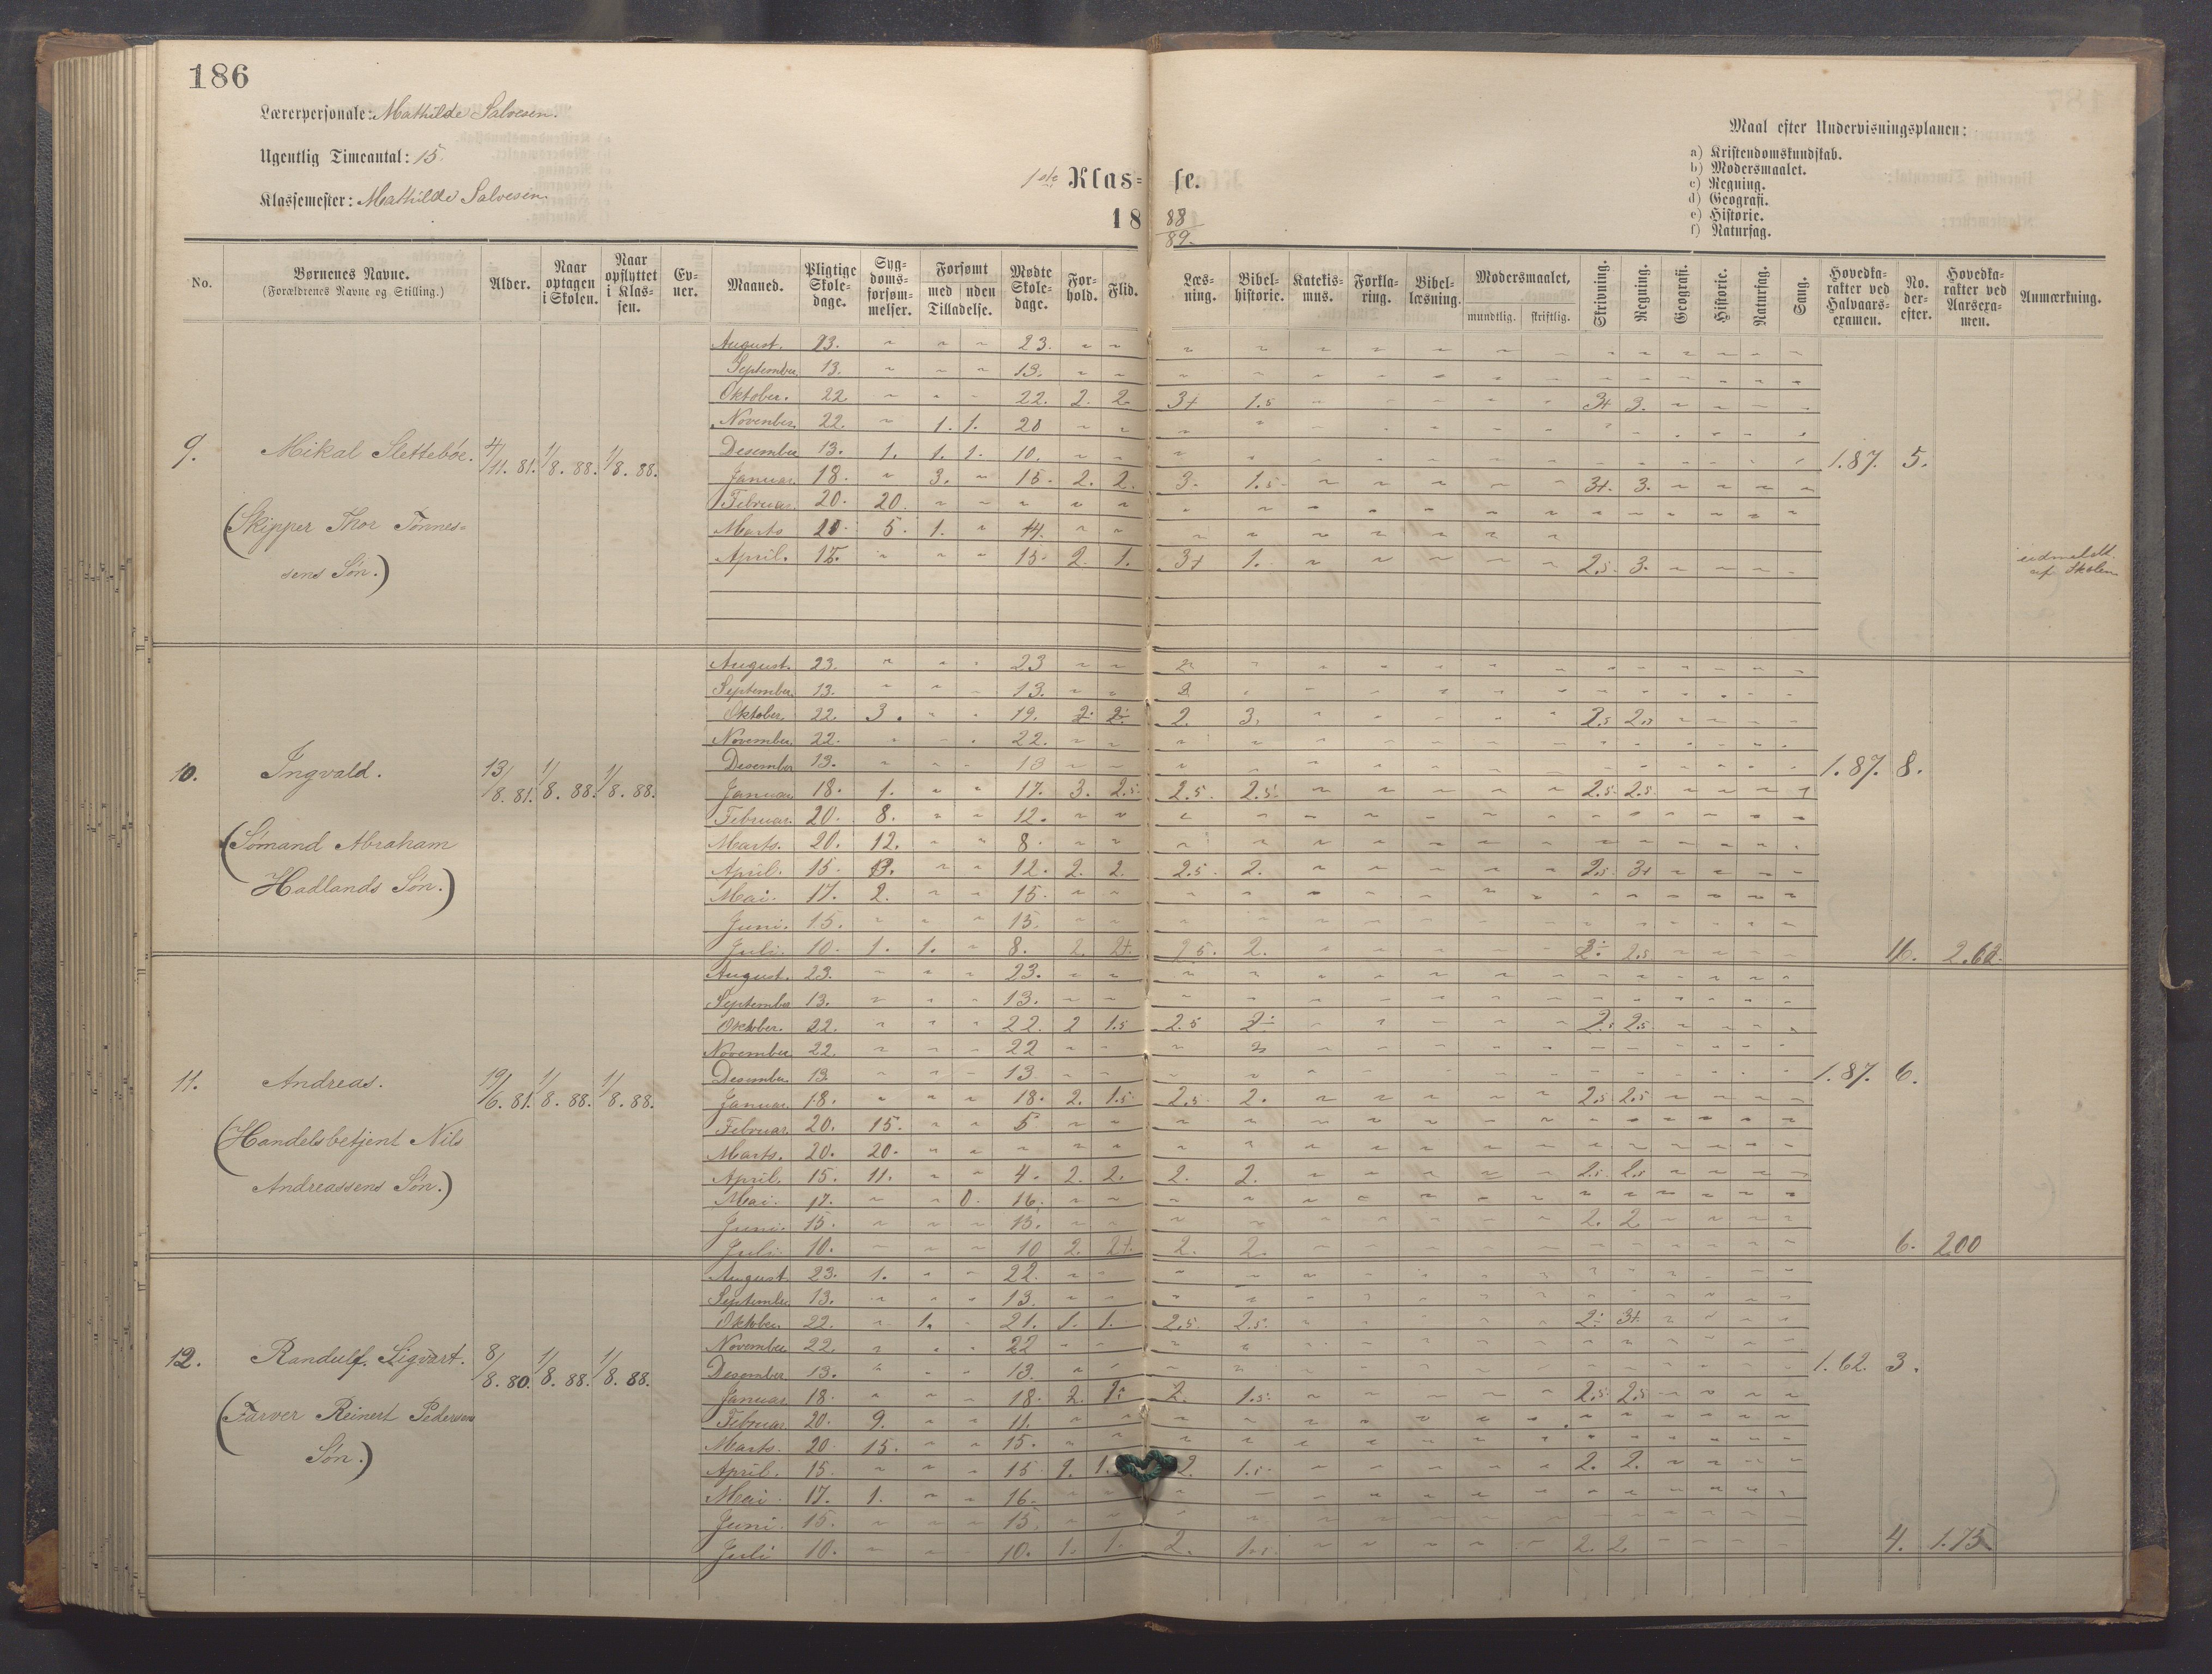 186
Lærerpersonale: Mathilde Salvesen.
Ugentlig Timeantal: 15.
Klassemester: Mathilde Salvesen.
1ste Klas= se.
18 88/89.
Maal efter Undervisningsplanen:
a) Kristendomskundskab.
b) Modersmaalet.
c) Regning.
d) Geografi.
e) Historie.
f) Natursag.
No. Børnenes Navne. (Forældrenes Navne og Stilling.) Alder. Naar optagen i Skolen. Naar opflyttet i Klas- sen. Ev- ner. Maaned. Pligtige Skole- dage. Syg- doms- forsøm- melser. Forsømt med uden Tilladelse. Mødte Skole- dage. For- hold. Flid. Læs- ning. Bibel- historie. Katekis- mus. Forkla- ring. Bibel- læsning. Modersmaalet, mundtlig. skriftlig. Skrivning. Regning. Geografi. Historie. Natursag. Sang. Hovedka- rakter ved Halvaars- examen. No. der- efter. Hovedka- rakter ved Aarsexa- men. Anmærkning.
August. 23. 23.
September. 13. 13.
Oktober. 22. 22. 2. 2. 3+ 1.5 3+ 3.
November. 22. 1. 1. 20
9. Mikal Slettebøe. 4/11. 81. 1/8. 88. 1/8. 88. Desember 13. 1. 1. 1. 10. 1.87. 5.
Januar. 18. 3. 15. 2. 2. 3. 1.5 3+. 3.
Februar. 20. 20.
(Skipper Thor Tønnes= Marts 20. 5. 1. 14.
sens Søn.) April. 15. 15. 2. 1. 3+ 1. 2.5. 3. udmeldt af Skolen
August. 23. 23
September. 13. 13.
Oktober. 22. 3. 19. 2. 3. 2.5 2.5
November. 22. 22.
10. Ingvald. 13/8. 81. 1/8. 88. 1/8. 88. Desember 13. 13 1.87. 8.
Januar 18. 1. 17. 3. 2.5. 2.5. 2.5. 2.5. 2.5.
Februar. 20. 8. 12.
(Sømand Abraham Marts. 20. 12. 8.
Hadlands Søn.) April. 15. 12. 2. 2. 2.5. 2. 2.5. 3+
Mai. 17. 2. 15.
Juni. 15. 15.
Juli. 10. 1. 1. 8. 2. 2+. 2.5. 2. 2.5 16. 2.62.
August. 23. 23.
September 13. 13.
Oktober. 22. 22. 2 1.5 2.5 2.5 2.5.
November 22. 22
11. Andreas. 19/6. 81. 1/8. 88. 1/8. 88. Desember 13. 13. 1.87. 6.
Januar. 18. 18. 2. 1.5. 2.5. 2. 2.5. 2.5
Februar. 20. 15. 5.
(Handelsbetjent Nils Marts. 20. 20.
Andreassens Søn.) April. 15. 11. 4. 2. 2. 2. 2. 2.5. 2.5
Mai. 17. 0. 16.
Juni. 15. 15. 2. 2
Juli. 10. 10 2. 2+. 2. 2. 6. 200
August. 23. 1. 22.
September. 13. 13.
Oktober. 22. 1. 21. 1. 1. 2.5. 2.5. 3+.
November 22. 22
12. Randulf. Sigvart. 8/8. 80. 1/8. 88. 1/8. 88. Desember 13. 13. 1.62. 3.
Januar 18. 18. 2. 2. 1.5. 2.5. 2.5
(Farver Reinert Pedersens Februar. 20. 9. 11.
Søn.) Marts. 20. 15. 15.
April. 15. 15. 1. 1. 2. 1.5. 2. 2.
Mai. 17. 1. 16.
Juni. 15. 15.
Juli 10. 10. 1. 1. 2. 1.5. 2. 2. 4. 1.75